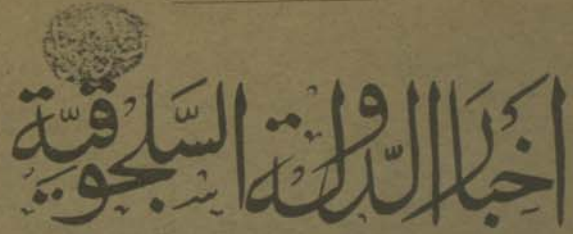 اخبار الدولة السلجوقية